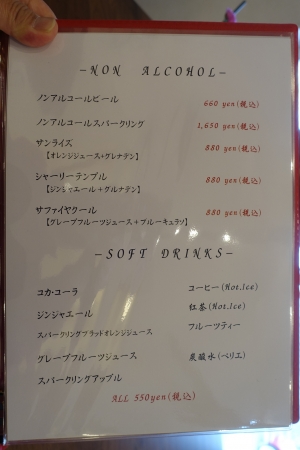 -NON ALCOHOL-
ノンアルコールビール 660 yen(税込)
ノンアルコールスパークリング 1,650 yen(税込)
サンライズ 880 yen(税込)
【オレンジジュース+グレナデン】
シャーリーテンプル 880 yen(税込)
【ジンジャエール+グルナデン】
サファイヤクール 880 yen(税込)
【グレープフルーツジュース+ブルーキュラソ】
-SOFT DRINKS-
コカ・コーラ コーヒー(Hot.Ice)
ジンジャエール 紅茶(Hot.Ice)
スパークリングブラッドオレンジジュース フルーツティー
グレープフルーツジュース 炭酸水(ペリエ)
スパークリングアップル
ALL 550yen(税込)